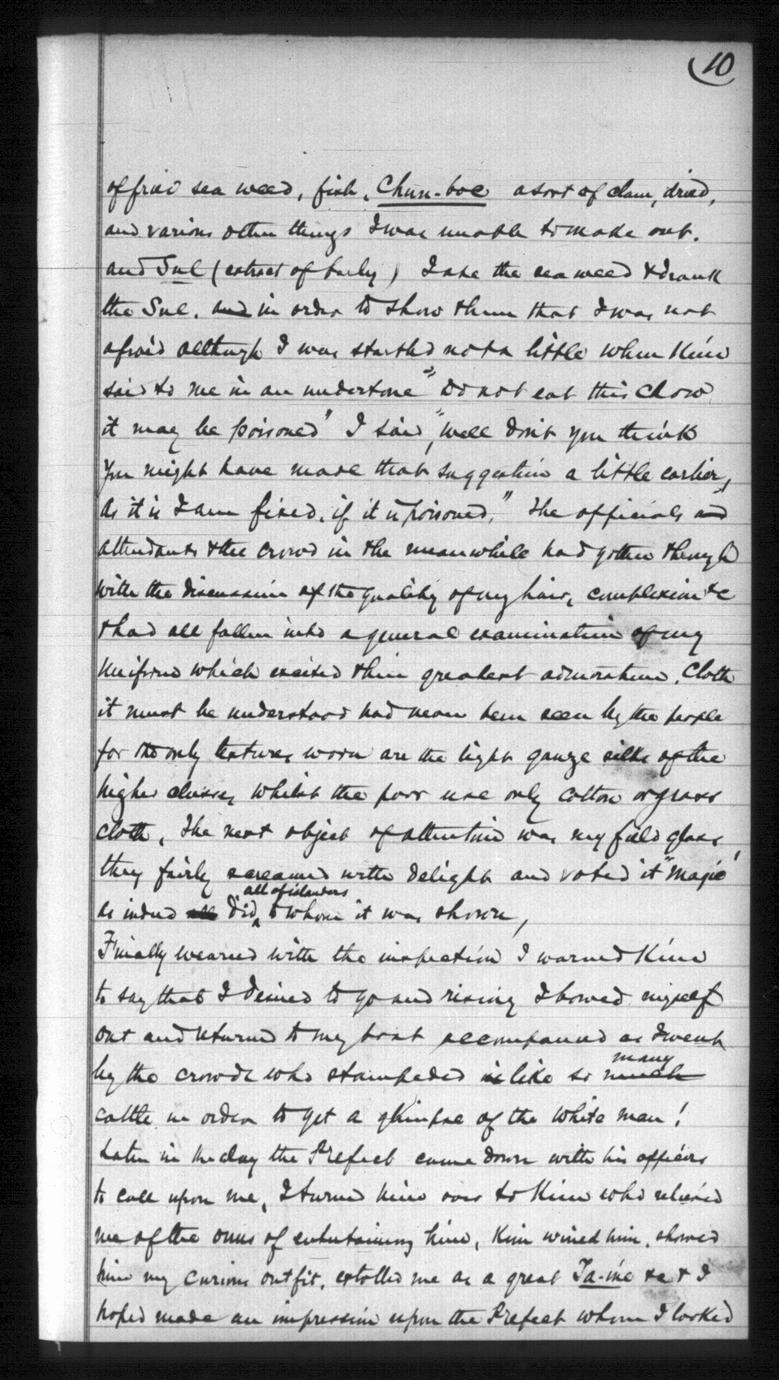 10
of fried sea weed, fish, Chun-boc a sort of clam, dried,
and various other things I was unable to make out.
and Sul (extract of barley) I ate the sea weed & drank
the Sul. and in order to show them that I was not
afraid although I was startled not a little when Kim
said to me in an undertone "Do not eat this Chow
it may be poisoned" I said, "well don't you think
you might have made that suggestion a little earlier,
as it is I am fixed, if it is poisoned." The officials and
attendants & the crowd in the meanwhile had gotten through
with the discussion of the quality of my hair, complexion &c
& had all fallen into a general examination of my
uniform which excited their greatest admiration. Cloth
it must be understood had never been seen by the people
for the only textures worn are the light gauze silks of the
higher classes, whilst the poor use only cotton or grass
cloth. The next object of attention was my field glass,
they fairly screamed with delight and voted it "magic"
all of islanders
as indeed all did, to whom it was shown,
Finally wearied with the inspection I warned Kim
to say that I desired to go and rising I bowed myself
out and returned to my boat accompanied as I went
many
by the crowds who stampeded in like so much
cattle in order to get a glimpse of the white man!
Later in the day the Prefect came down with his officers
to call upon me, I turned him over to Kim who relieved
me of the onus of entertaining him, Kim wined him, showed
him my curious outfit, extolled me as a great Ta-in &c & I
hoped made an impression upon the Prefect whom I looked